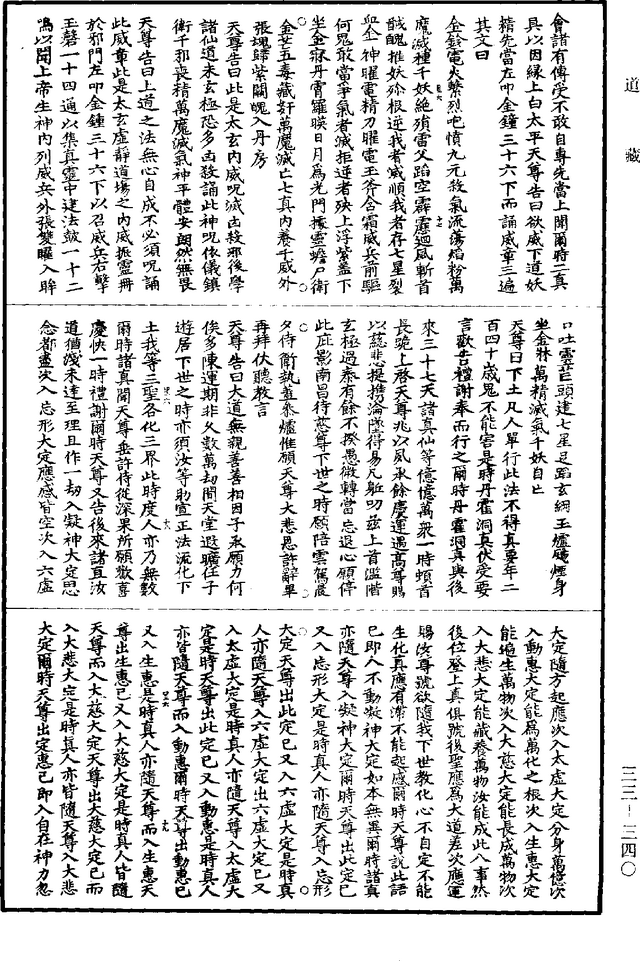 道藏
會諸有傳受不敢自專先當上聞爾時二真
具以因緣上白太平天尊告曰欲威下道妖
精先當左叩金鐘三十六下而誦威章三遍
其文曰
金鈴電火縈烈吧憤九元敖氣流傷焰粉萬
魔滅種千妖絕殞雷父蹈空霹靂迴風斬首
馘醜摧妖殄根逆我者滅順我者存七星裂
血金神曜電精刀曜電玉斧金霜威兵前驅
何鬼敢當爭氣者滅拒逆者殃上浮紫蓋下
坐金寐丹霄羅暎日月為光門據靈蟾尸衛
金芒五毒藏奸萬魔滅亡七真內養千威外
張魂歸紫闕魄入丹房
天尊告曰此是太玄內威呪滅凶救邪後學
諸仙道未玄極恐多凶救誦此神呪依儀鎮
衛千邪喪精萬魔滅氣神平體安朗然無畏
天尊告曰上道之法無心自成不必須呪誦
此威章此是太玄虛靜道場之內威振靈冊
於邪門左叩金鍾三十六下以召威兵右擊
玉磬一十四遍以集真靈中建法皷一十二
鳴以聞上帝生神內列威兵外張雙曜入眸
口吐雲芒頭建七星足蹈玄綱玉爐颺煙身
坐金牀萬精滅氣千妖自亡
天尊曰下土凡人單行此法不得真要年二
百四十歲鬼不能害是時丹霍洞真伏受要
言歡喜禮謝奉而行之爾時丹霍洞真與後
來三十七天諸真仙等億億萬衆一時頓首
長跪上啓天尊兆以夙承餘慶運遇高尊賜
以慈悲提攜淪墜得易凡軀叨兹上首濫階
玄極過泰有餘不揆愚微轉當忘退心願停
此庇影南昌待慈尊下世之時願陪雲駕晨
夕侍衛執蓋焚爐惟願天尊大悲恩許辭畢
再拜伏聽教言
天尊告曰大道無親善善相因子承願力何
俟多陳運期非久數萬劫間天堂遐曠任子
遊居下世之時亦須汝等助宣正法流化下
土我等三聖各化三界此時度人亦乃無數
爾時諸真聞天尊垂許侍從深果所願歡喜
慶快一時禮謝爾時天尊又告後來諸真汝
道猶淺未達至理且作一劫入凝神大定思
念都盡次入忘形大定應感皆空次入六虛
大定隨方起應次入太虛大定分身萬億次
入動惠大定能為萬化之根次入生惠大定
能遍生萬物次入大慈大定能長成萬物次
入大悲大定能藏養萬物汝能成此八事然
後位登上真俱號後聖應為大道差次應運
賜汝尊號欲隨我下世教化心不自定不能
生化真應有滯不能起感爾時天尊說此語
已即入不動凝神大定如本無異爾時諸真
亦隨天尊入凝神大定爾時天尊出此定已
又入忘形大定是時真人亦隨天尊入忘形
大定天尊出此定已又入六虛大定是時真
人亦隨天尊入六虛大定出六虛大定已又
入太虛大定是時真人亦隨天尊入太虛大
定是時天尊出此定已又入動惠是時真人
亦皆隨天尊而入動惠爾時天尊出動惠已
又入生惠是時真人亦隨天尊而入生惠天
尊出生惠已又入大慈大定是時真人皆隨
天尊而入大慈大定天尊出大慈大定已而
入大悲大定是時真人亦皆隨天尊入大悲
大定爾時天尊出定惠已即入自在神力忽
三三—三四〇